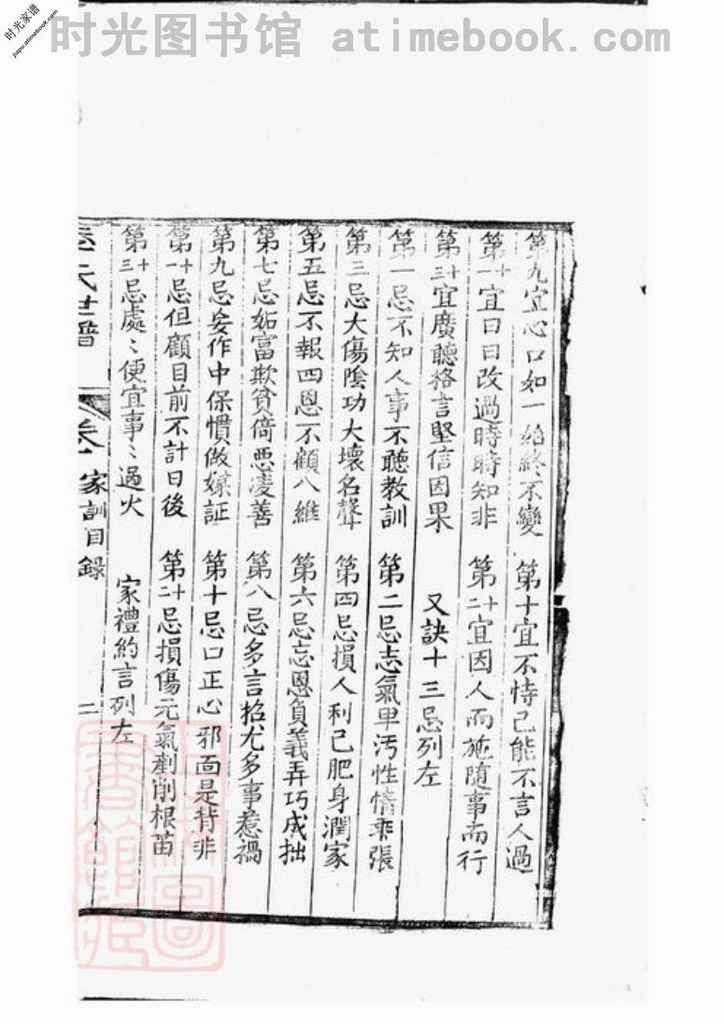 时光图书馆 atimebook.com
时光家谱
jiapu.atimebook.com
第九宜心口如一始終不變　第十宜不恃己能不言人過
第十一宜日日改過時時知非　第十二宜因人而施隨事而行
第十三宜廣聽格言堅信因果　又訣十三忌列左
第一忌不知人事不聽教訓　第二忌志氣卑污性情乖張
第三忌大傷陰功大壞名聲　第四忌損人利己肥身潤家
第五忌不報四恩不顧八維　第六忌忘恩負義弄巧成拙
第七忌妬富欺貧倚惡凌善　第八忌多言招尤多事惹禍
第九忌妄作中保慣做媒証　第十忌口正心邪面是背非
第十一忌但顧目前不計日後　第十二忌損傷元氣剷削根苗
第十三忌處〻便宜事〻過火　家禮約言列左
氏世譜　卷　家訓目錄　二
圖書館藏